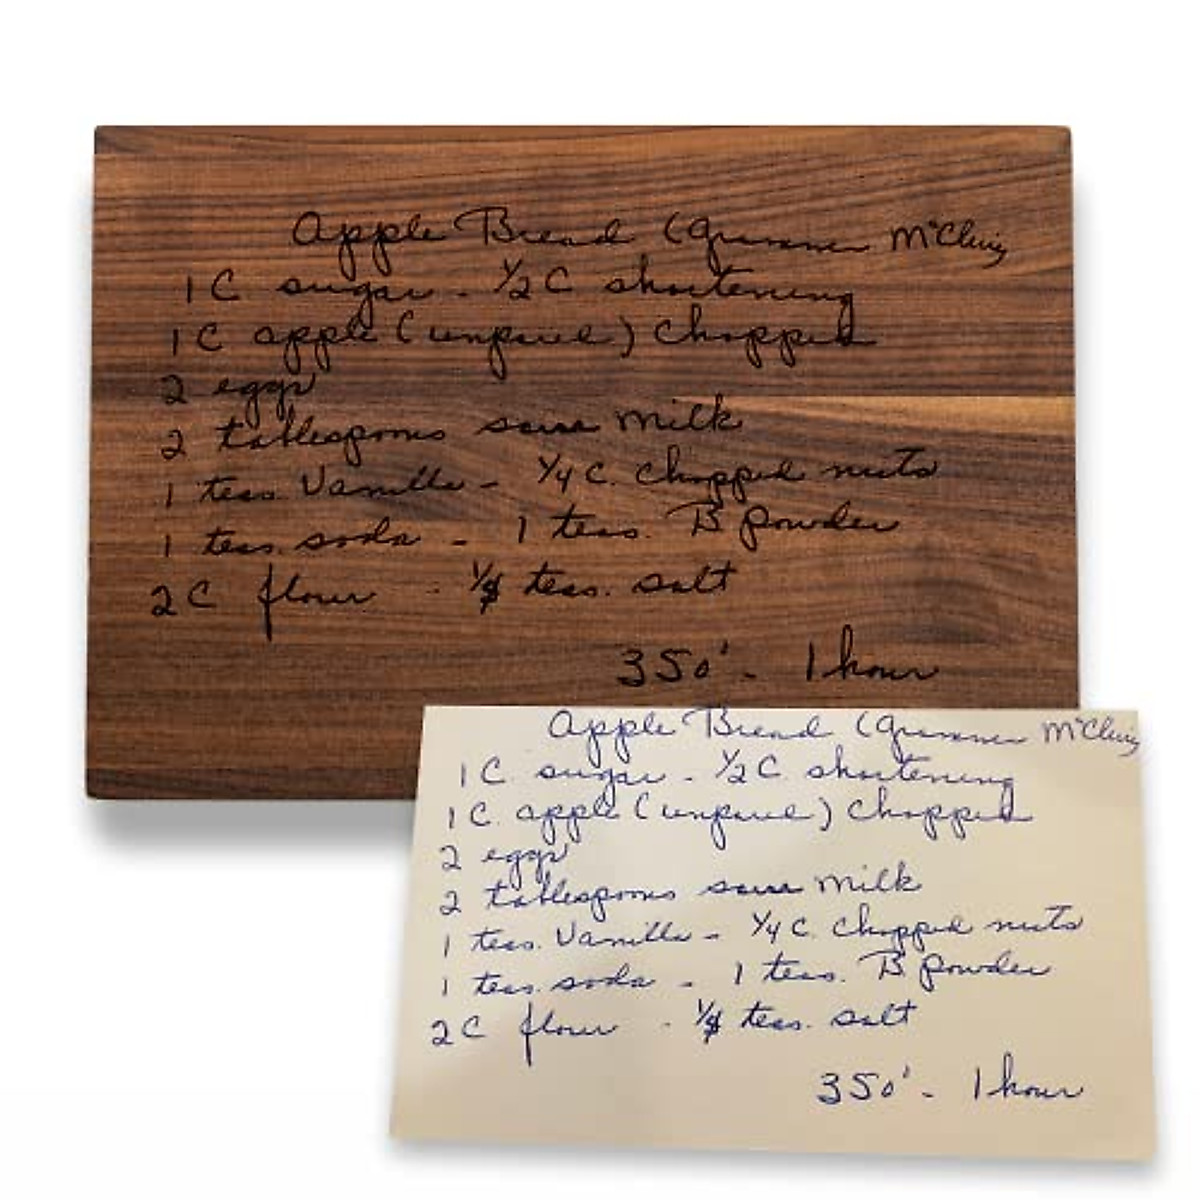 Apple Bread (Grammer McCluig
1 C sugar - 1/2 C shortening
1 C apple (unpare) chopped
2 eggs
2 tablespoons sour milk
1 teas. Vanilla - 1/4 C. chopped nuts
1 teas. soda - 1 teas. B powder
2 C flour - teas. salt
350' - 1 hour
Apple Bread (Grammer
1 C. sugar - 1/2 C. shortening
1 C. apple (unpare) chopped
2 eggs
2 tablespoons sour milk
1 teas. Vanilla - 1/4 C. chopped nuts
1 teas. soda - 1 teas. B powder
2 C flour - teas. salt
350' - 1 hour